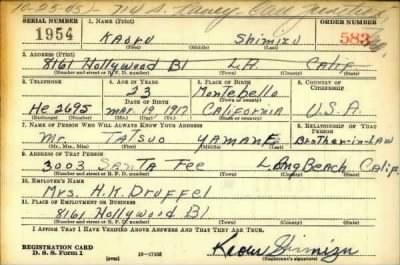 10-25-45)-
SERIAL NUMBER 1. NAME (Print) ORDER NUMBER
1954 Kaoru Shimizu 583
(First) (Middle) (Last)
2. ADDRESS (Print)
8161 Hollywood Bl L.A. Calif.
(Number and street or R. F. D. number) (Town) (County) (State)
3. TELEPHONE 4. AGE IN YEARS 5. PLACE OF BIRTH 6. COUNTRY OF CITIZENSHIP
23 Montebello
DATE OF BIRTH (Town or county)
He 2695 Mar. 19 1917 California U.S.A.
(Exchange) (Number) (Mo.) (Day) (Yr.) (State or country)
7. NAME OF PERSON WHO WILL ALWAYS KNOW YOUR ADDRESS 8. RELATIONSHIP OF THAT PERSON
Mr. Tatsuo Yamane Brother-in-law
(Mr., Mrs., Miss) (First) (Middle) (Last)
9. ADDRESS OF THAT PERSON
3003 Santa Fee Long Beach Calif.
(Number and street or R. F. D. number) (Town) (County) (State)
10. EMPLOYER'S NAME
Mrs. H.K. Druffel
11. PLACE OF EMPLOYMENT OR BUSINESS
8161 Hollywood Bl
(Number and street or R. F. D. number) (Town) (County) (State)
I AFFIRM THAT I HAVE VERIFIED ABOVE ANSWERS AND THAT THEY ARE TRUE.
REGISTRATION CARD
D. S. S. Form 1 16-17105 Kaoru Shimizu
(Registrant's signature)